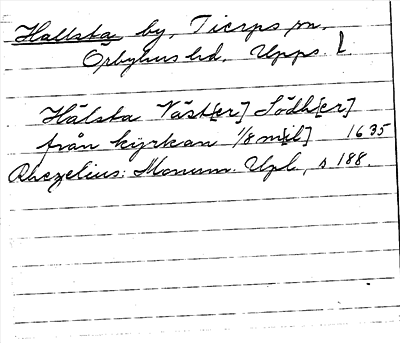 Hallsta by, Tierps sn.
Örbyhus hd. Upps. L
Hälsta Väst[er] Södh[er]
från kyrkan 1/8 m[il] 1635
Rhezelius: Monum. Upl., s 188.